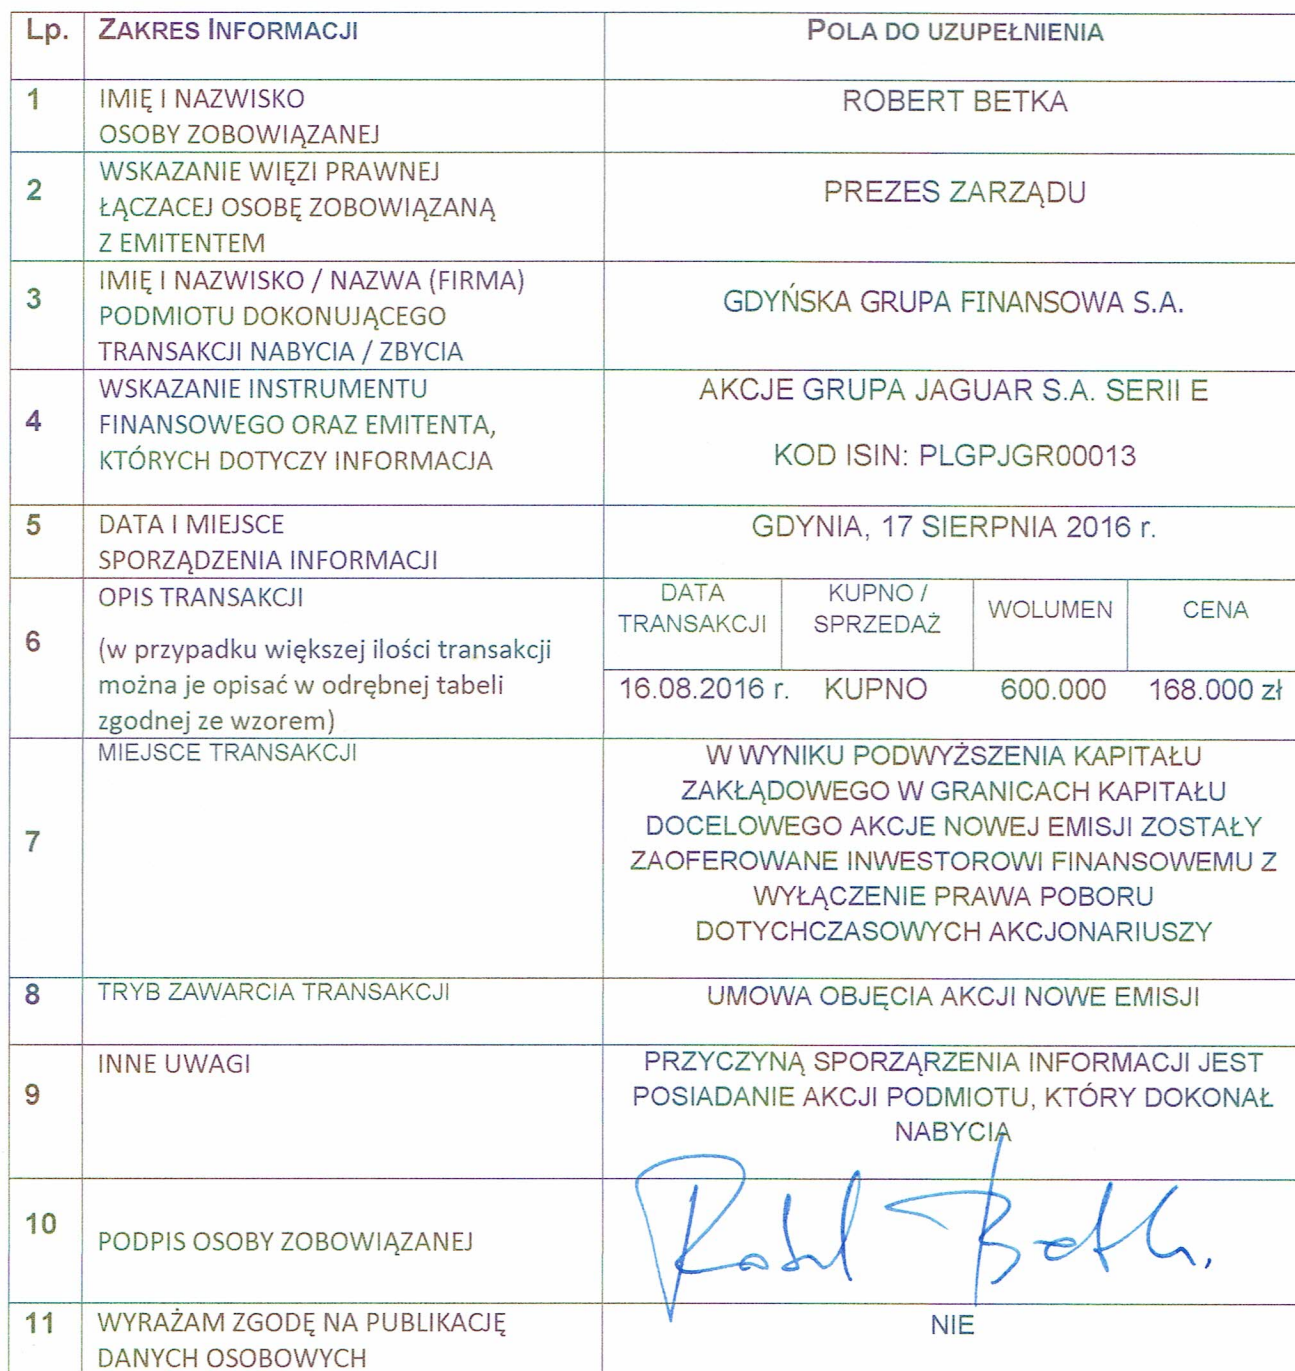 Lp. ZAKRES INFORMACJI POLA DO UZUPEŁNIENIA
1 IMIĘ I NAZWISKO
OSOBY ZOBOWIĄZANEJ
ROBERT BETKA
2 WSKAZANIE WIĘZI PRAWNEJ
ŁĄCZACEJ OSOBĘ ZOBOWIĄZANĄ
Z EMITENTEM
PREZES ZARZĄDU
3 IMIĘ I NAZWISKO / NAZWA (FIRMA)
PODMIOTU DOKONUJĄCEGO
TRANSAKCJI NABYCIA / ZBYCIA
GDYŃSKA GRUPA FINANSOWA S.A.
4 WSKAZANIE INSTRUMENTU
FINANSOWEGO ORAZ EMITENTA,
KTÓRYCH DOTYCZY INFORMACJA
AKCJE GRUPA JAGUAR S.A. SERII E
KOD ISIN: PLGPJGR00013
5 DATA I MIEJSCE
SPORZĄDZENIA INFORMACJI
GDYNIA, 17 SIERPNIA 2016 r.
6 OPIS TRANSAKCJI
(w przypadku większej ilości transakcji
można je opisać w odrębnej tabeli
zgodnej ze wzorem)
DATA
TRANSAKCJI
KUPNO /
SPRZEDAŻ
WOLUMEN
CENA
16.08.2016 r. KUPNO 600.000 168.000 zł
7 MIEJSCE TRANSAKCJI
W WYNIKU PODWYŻSZENIA KAPITAŁU
ZAKŁĄDOWEGO W GRANICACH KAPITAŁU
DOCELOWEGO AKCJE NOWEJ EMISJI ZOSTAŁY
ZAOFEROWANE INWESTOROWI FINANSOWEMU Z
WYŁĄCZENIE PRAWA POBORU
DOTYCHCZASOWYCH AKCJONARIUSZY
8 TRYB ZAWARCIA TRANSAKCJI UMOWA OBJĘCIA AKCJI NOWE EMISJI
9 INNE UWAGI
PRZYCZYNĄ SPORZĄRZENIA INFORMACJI JEST
POSIADANIE AKCJI PODMIOTU, KTÓRY DOKONAŁ
NABYCIA
10 PODPIS OSOBY ZOBOWIĄZANEJ
11 WYRAŻAM ZGODĘ NA PUBLIKACJĘ
DANYCH OSOBOWYCH
NIE